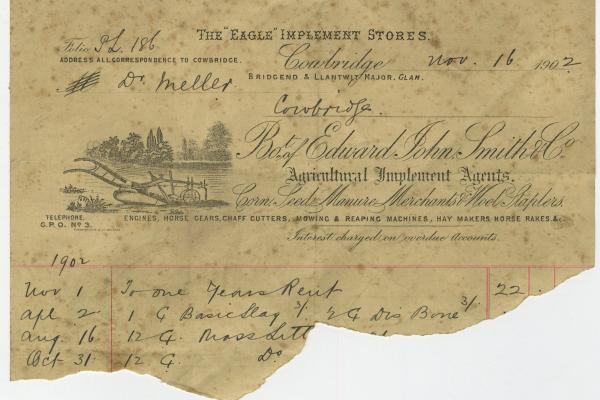 The "Eagle" Implement Stores.
Folio PL. 186
Address all correspondence to Cowbridge.
Cowbridge Nov. 16 1902
Bridgend & Llantwit Major, Glam.
Dr. Meller
Cowbridge.
Bot. of Edward John Smith & Co.
Agricultural Implement Agents.
Corn, Seed, Manure Merchants & Wool Staplers.
Engines, Horse Gears, Chaff Cutters, Mowing & Reaping Machines, Hay Makers, Horse Rakes &c.
Telephone.
G.P.O. No 3.
Interest charged on overdue Accounts.
1902
Nov 1 To one Years Rent 22 .
Apl 2 1 C Basic Slag 3/. 2 C Dis Bone 3/.
Aug 16 12 C. Moss Litt
Oct 31 12 C. Do